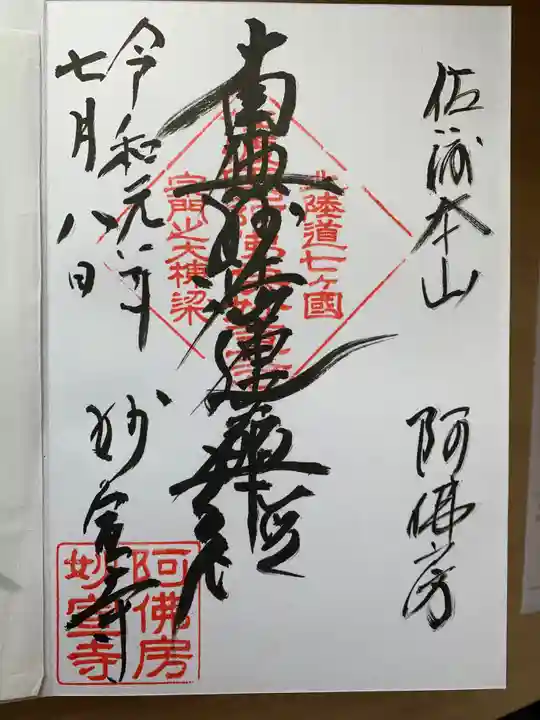 佐渡本山
阿佛房
南無妙法蓮華経
北陸道七ヶ國
宗門之大棟梁
令和元年
七月八日
妙宣寺
阿佛房
妙宣寺